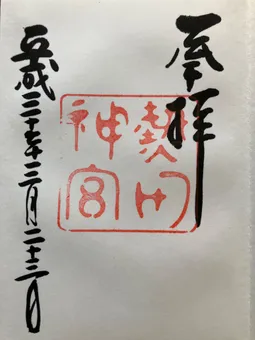 奉拝
熱田
神宮
平成三十年三月二十三日